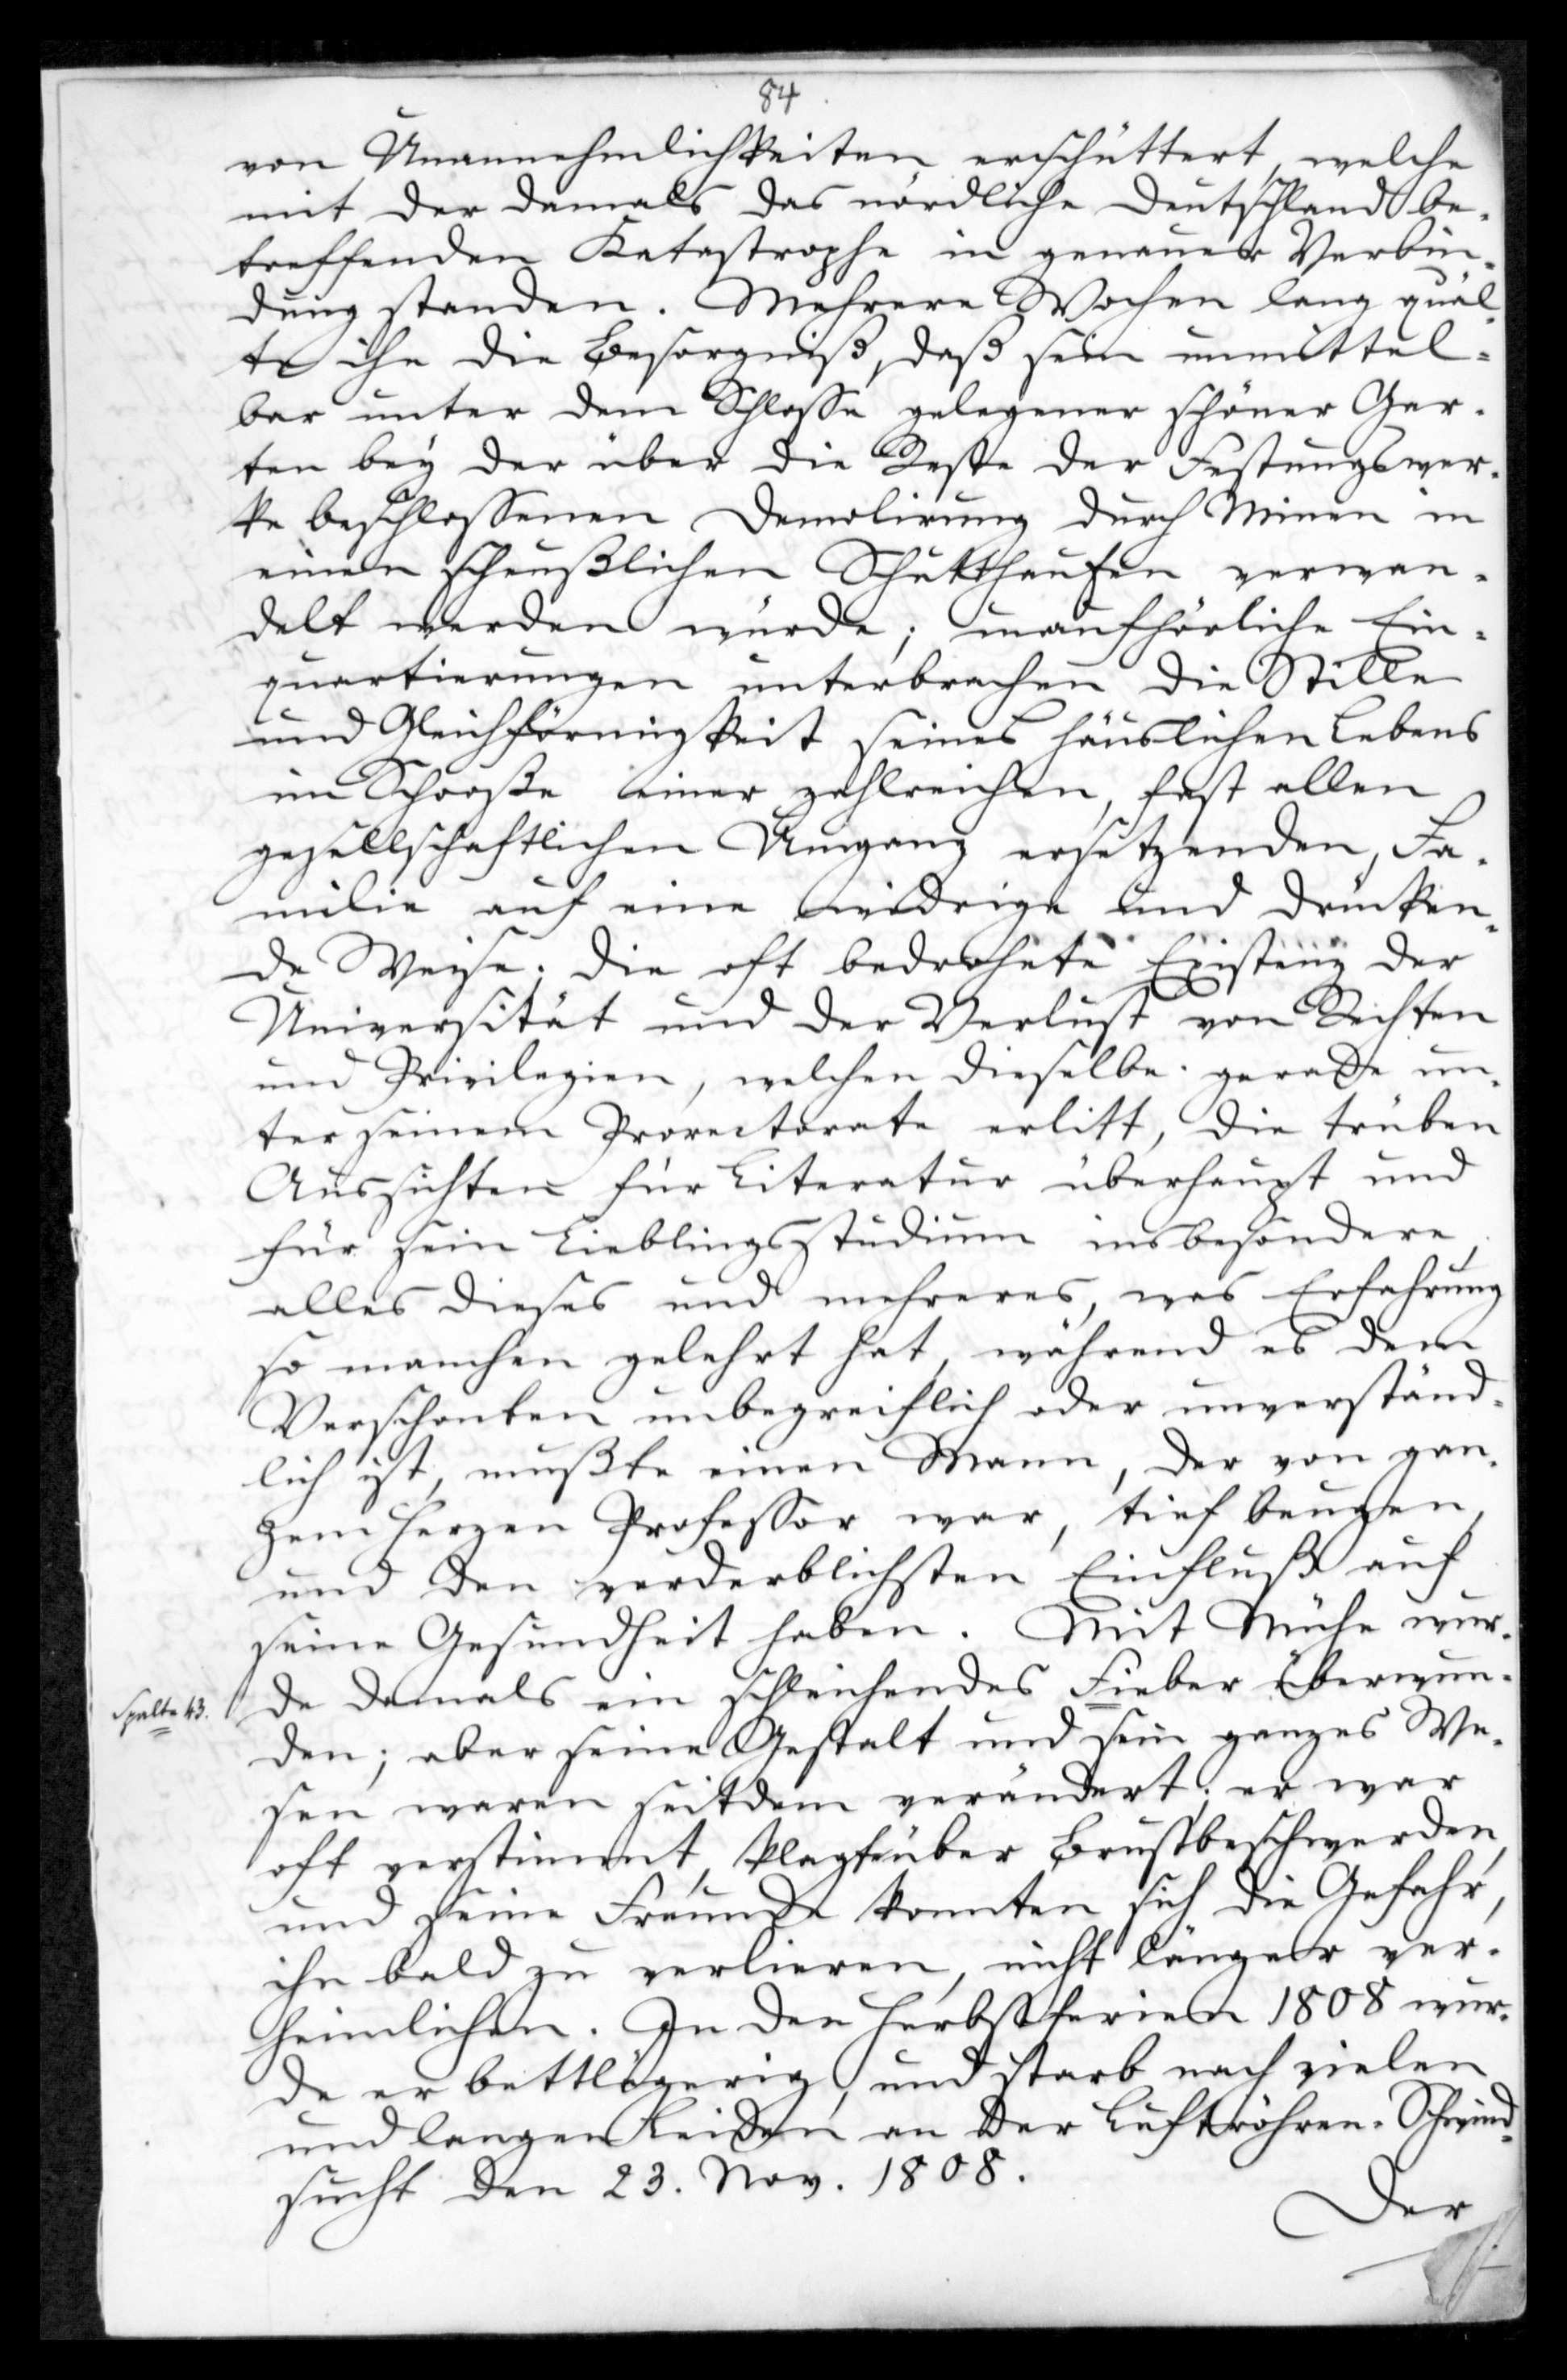 84
von Unannehmlichkeiten erschüttert, welche
mit der damals das nördliche Deutschland be-
treffenden Katastrophe in genauer Verbin-
dung standen. Mehrere Wochen lang quäl-
te ihn die Besorgniß, daß sein unmittel-
bar unter dem Schlosse gelegener schöner Gar-
ten bey der über die Reste der Festungswer-
ke beschlossenen Demolirung durch Minen in
einen scheußlichen Schutthaufen verwan-
delt werden würde; unaufhörliche Ein-
quartierungen unterbrachen die Stille
und Gleichförmigkeit seines häuslichen Lebens
im Schooße einer zahlreichen, fast allen
gesellschaftlichen Umgang ersetzenden, Fa-
milie auf eine widrige und drücken-
de Weise; die oft bedrohete Existenz der
Universität und der Verlust von Rechten
und Privilegien, welchen dieselbe gerade un-
ter seinem Prorectorate erlitt, die trüben
Aussichten für Literatur überhaupt und
für sein Lieblingsstudium insbesondere,
alles dieses und mehreres, was Erfahrung
so manchen gelehrt hat, während es dem
Verschonten unbegreiflich oder unverständ-
lich ist, mußte einen Mann, der von gan-
zem Herzen Professor war, tief beugen,
und den verderblichsten Einfluß auf
seine Gesundheit haben. Mit Mühe wur-
Spalte 43. de damals ein schleichendes Fieber überwun-
den; aber seine Gestalt und sein ganzes We-
sen waren seitdem verändert; er war
oft verstimmt, klagte über Brustbeschwerden,
und seine Freunde konnten sich die Gefahr,
ihn bald zu verlieren, nicht länger ver-
heimlichen. In den Herbstferien 1808 wur-
de er bettlägerig, und starb nach vielen
und langen Leiden an der Luftröhren-Schwind-
sucht den 23. Nov. 1808.
Der